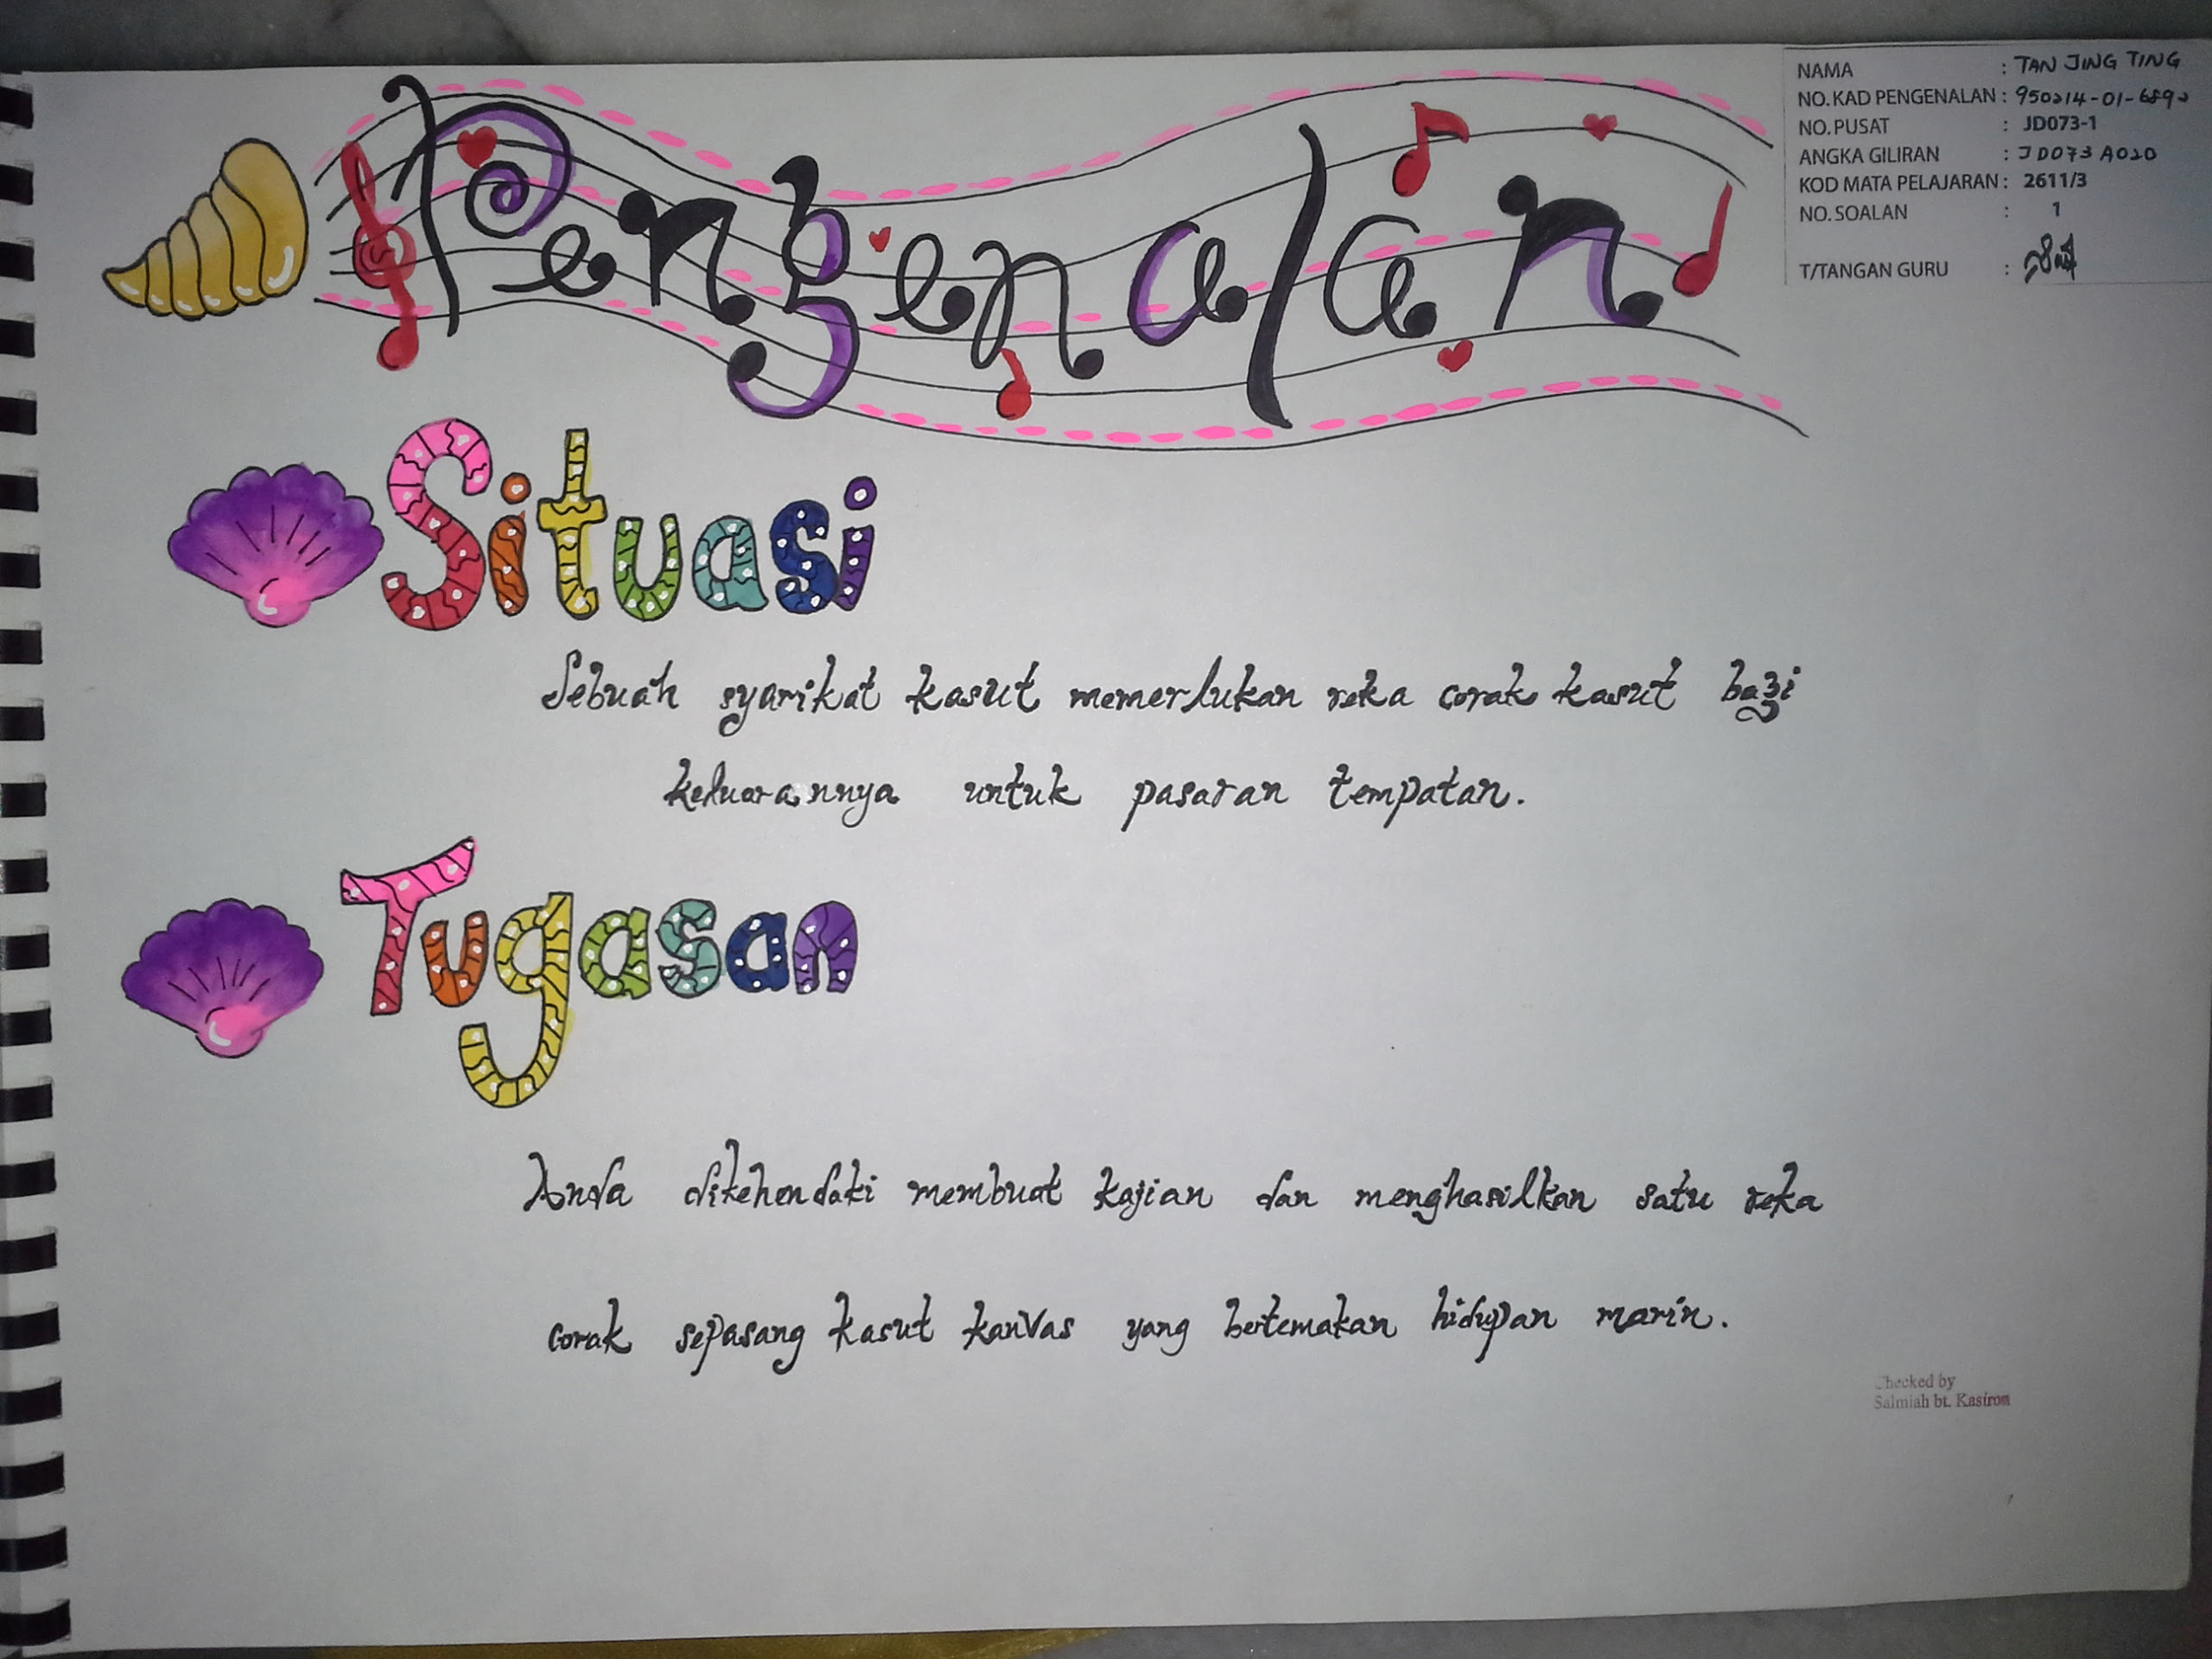 NAMA : TAN JING TING
NO. KAD PENGENALAN : 950214-01-6890
NO. PUSAT : JD073-1
ANGKA GILIRAN : JD073A020
KOD MATA PELAJARAN : 2611/3
NO. SOALAN : 1
T/TANGAN GURU :
Pengenalan
Situasi
Sebuah syarikat kasut memerlukan reka corak kasut bagi
keluarannya untuk pasaran tempatan.
Tugasan
Anda dikehendaki membuat kajian dan menghasilkan satu reka
corak sepasang kasut kanvas yang bertemakan hidupan marin.
Checked by
Salmiah bt. Kasiron